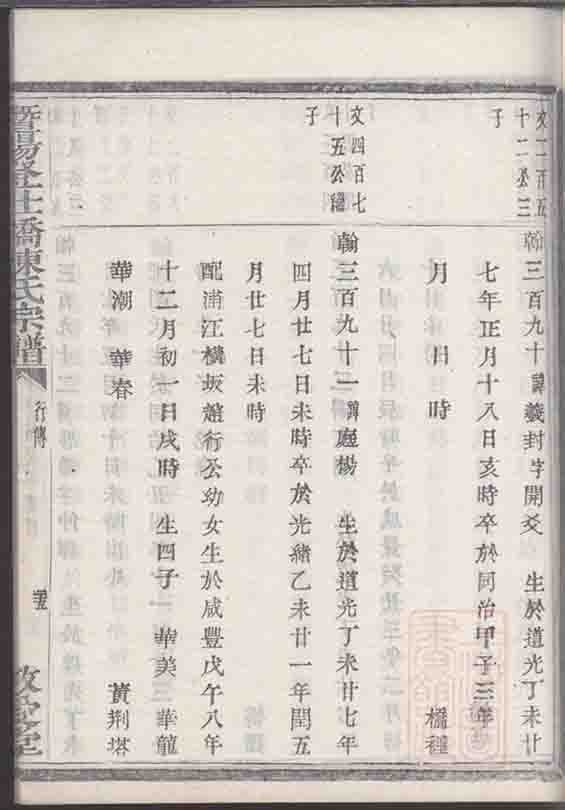 文二百五
十二公三
子
翰三百九十諱羲封字開爻 生於道光丁未廿
七年正月十八日亥時卒於同治甲子三年
月 日 時
文四百七
十五公繼
子
翰三百九十一諱庭楊 生於道光丁未廿七年
四月廿七日未時卒於光緒乙未廿一年閏五
月廿七日未時
配浦江橫坂趙行公幼女生於咸豐戊午八年
十二月初一日戌時 生四子 華美 華龍
華潮 華春 黃荆塔
暨陽 橋陳氏宗譜
行傳